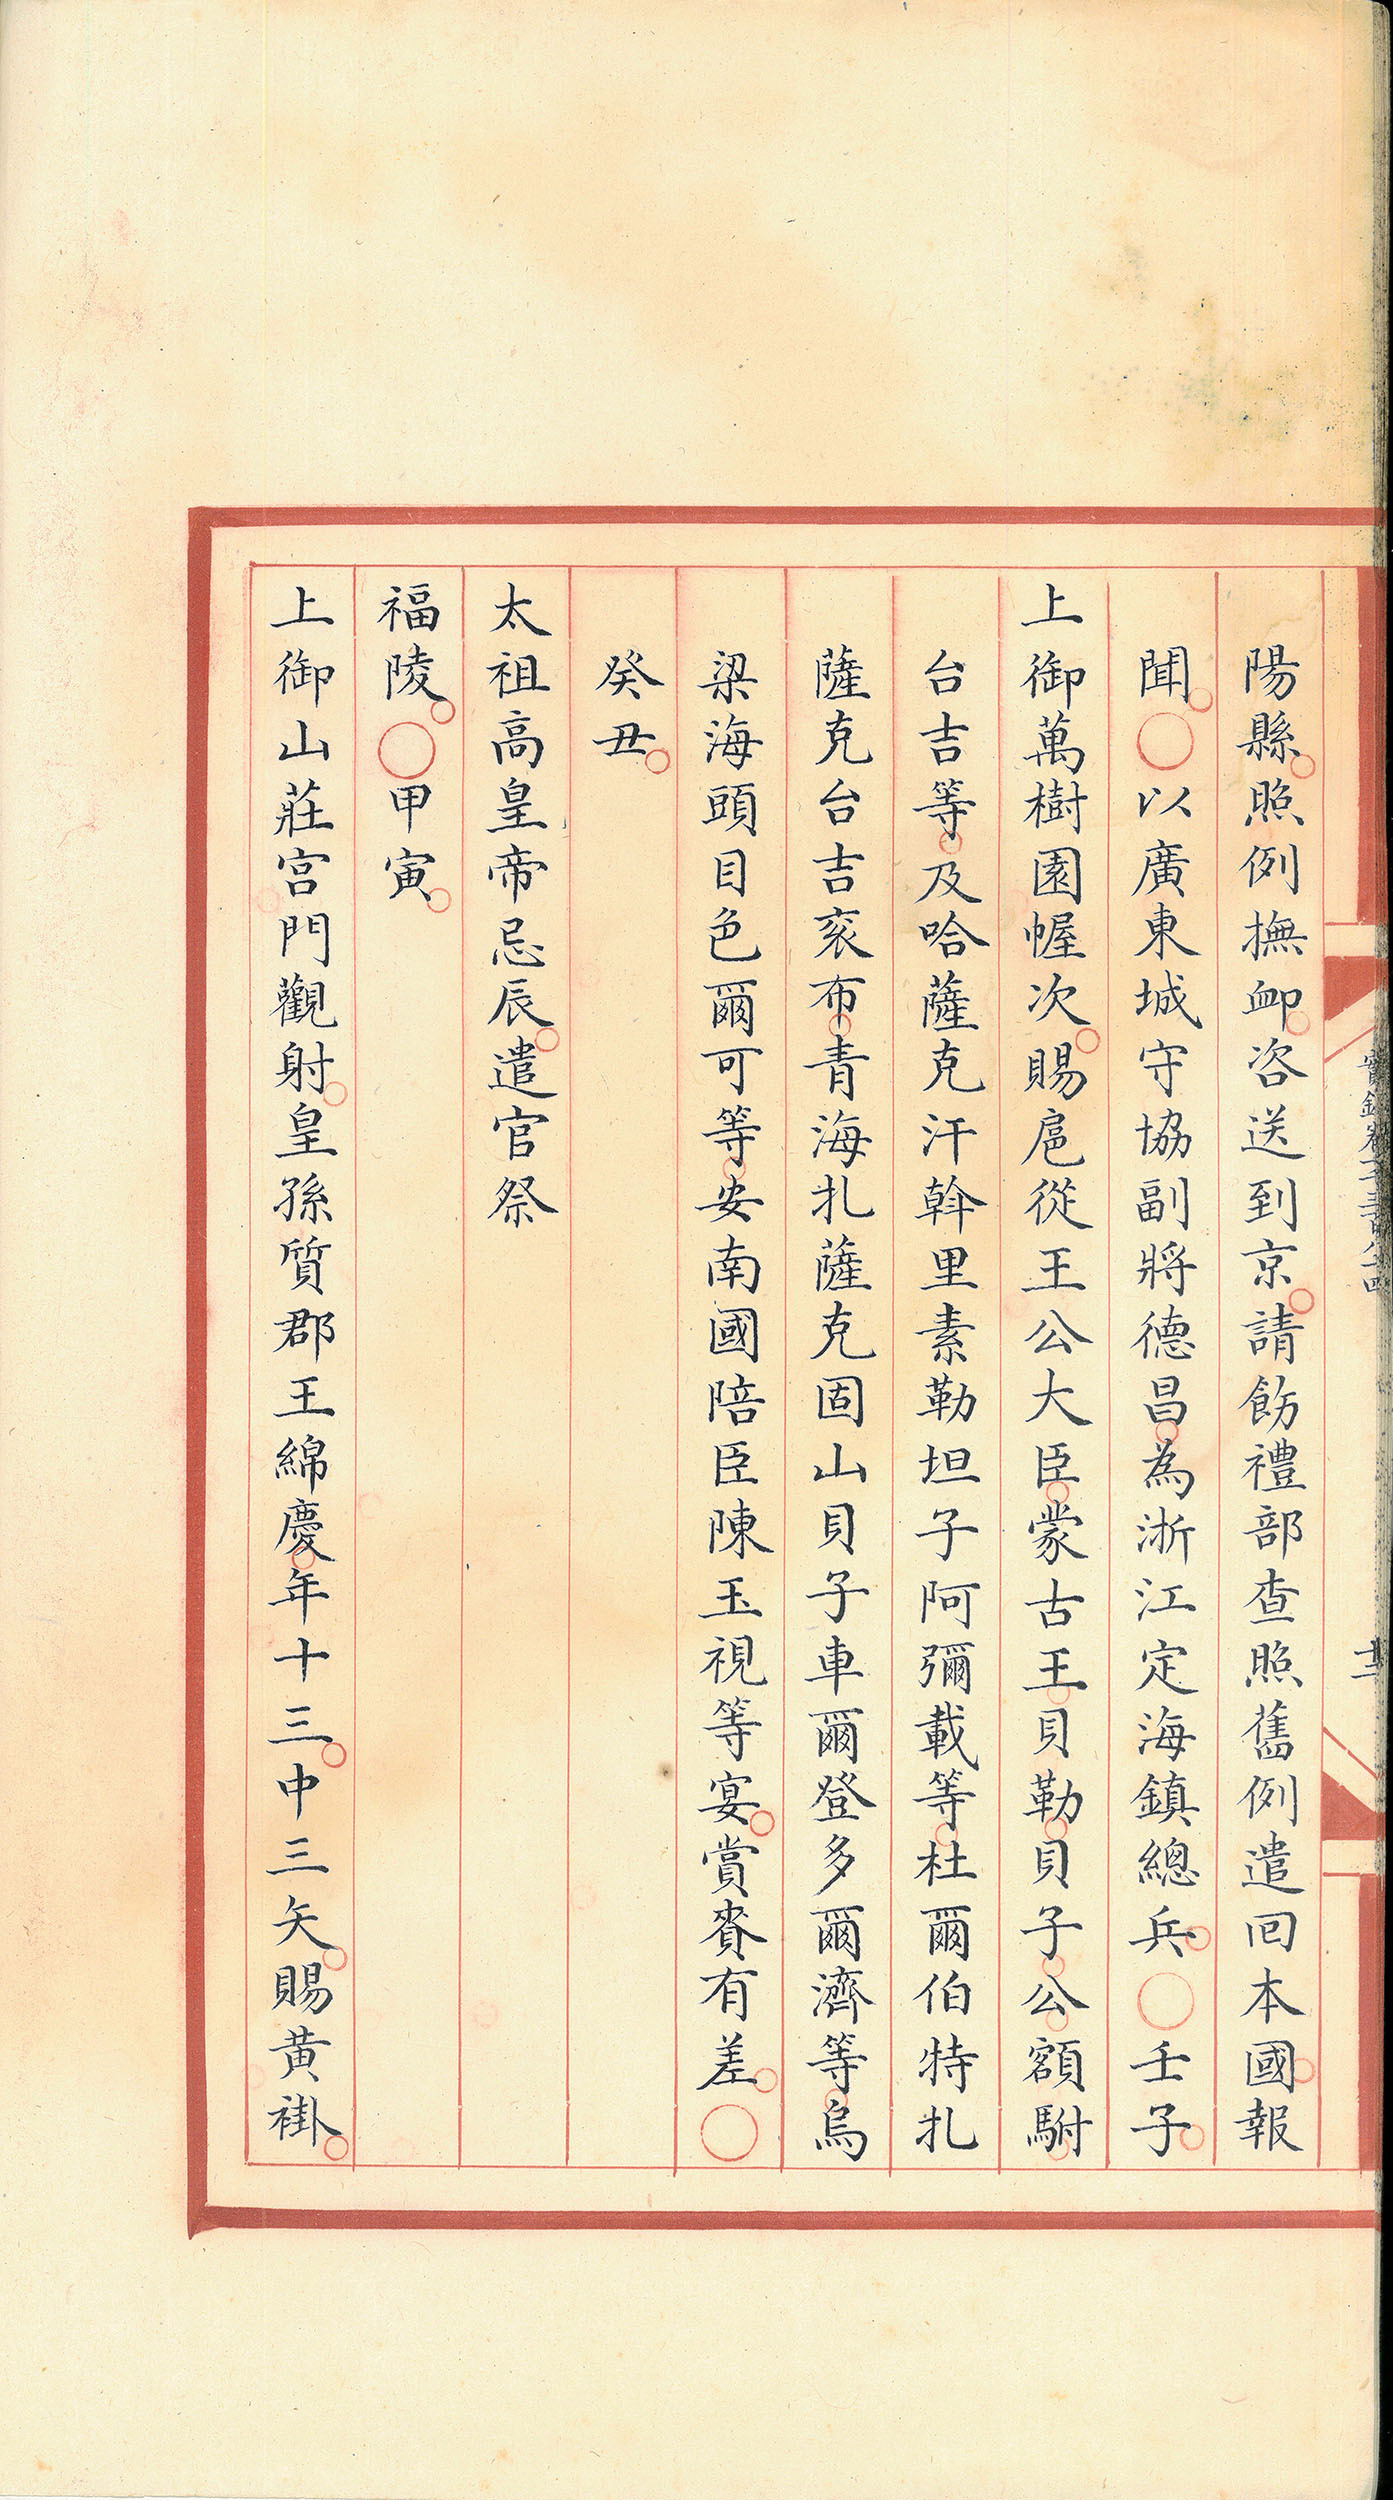 陽縣。照例撫卹。咨送到京。請飭禮部查照舊例遣回本國。報
聞。○以廣東城守協副將德昌。為浙江定海鎮總兵。○壬子。
上御萬樹園幄次。賜扈從王公大臣。蒙古王。貝勒。貝子。公。額駙。
台吉等。及哈薩克汗斡里素勒坦子阿彌載等。杜爾伯特扎
薩克台吉袞布。青海扎薩克固山貝子車爾登多爾濟等。烏
梁海頭目色爾可等。安南國陪臣陳玉視等宴。賞賚有差。○
癸丑。
太祖高皇帝忌辰。遣官祭
福陵。○甲寅。
上御山莊宮門觀射。皇孫質郡王綿慶。年十三。中三矢。賜黃褂。